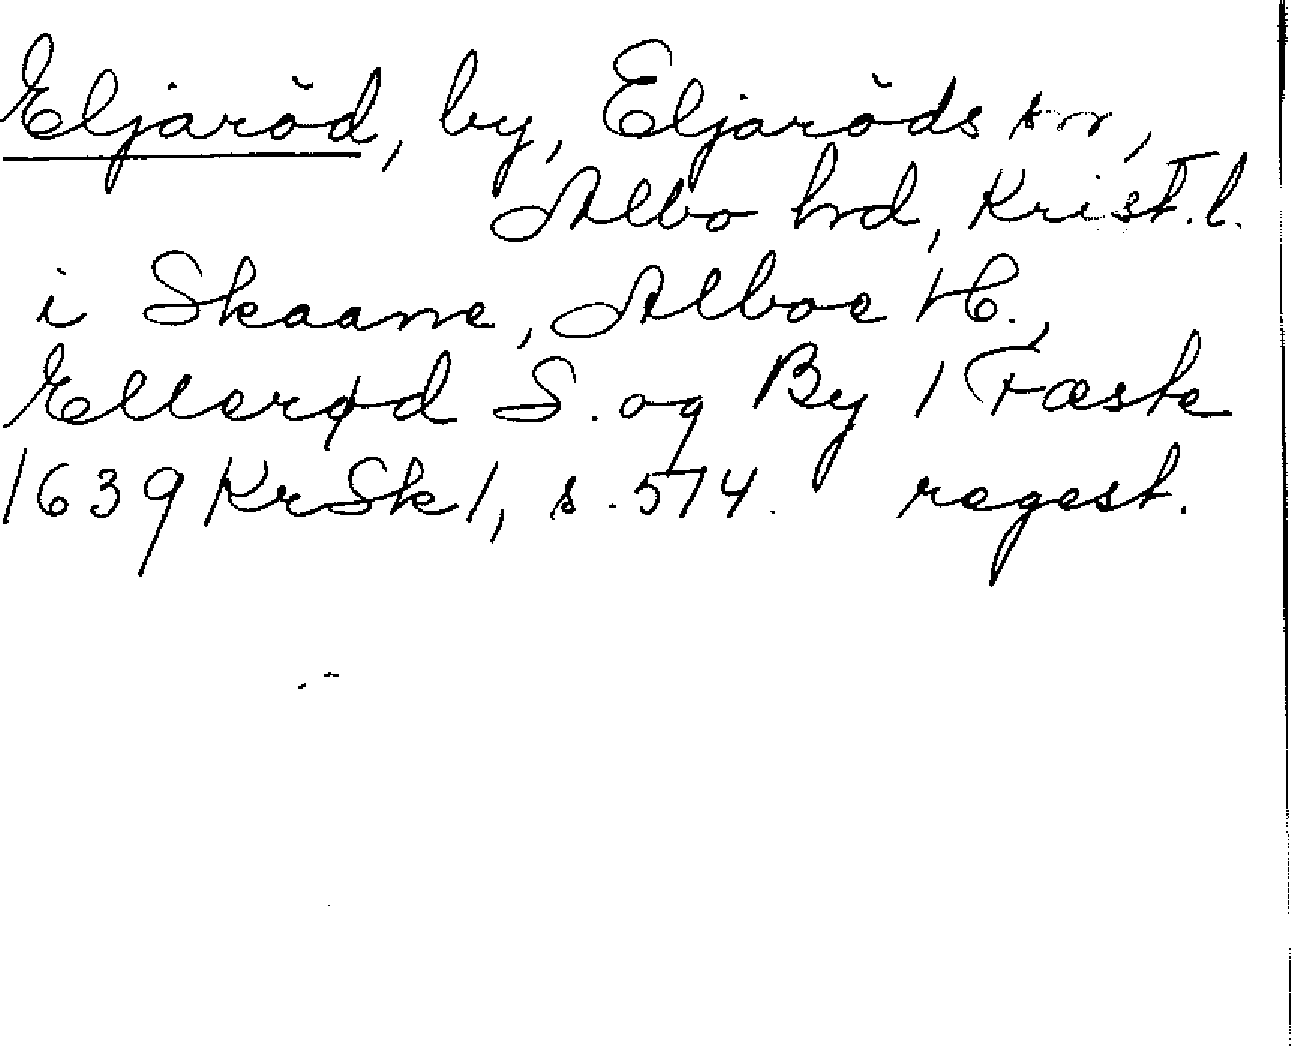 Eljaröd, by, Eljaröds sn,
Albo hd, Krist.l.
i Skaane, Alboe H.,
Ellerød S. og By 1 Fæste
1639 KrSk 1, s. 574. regest.